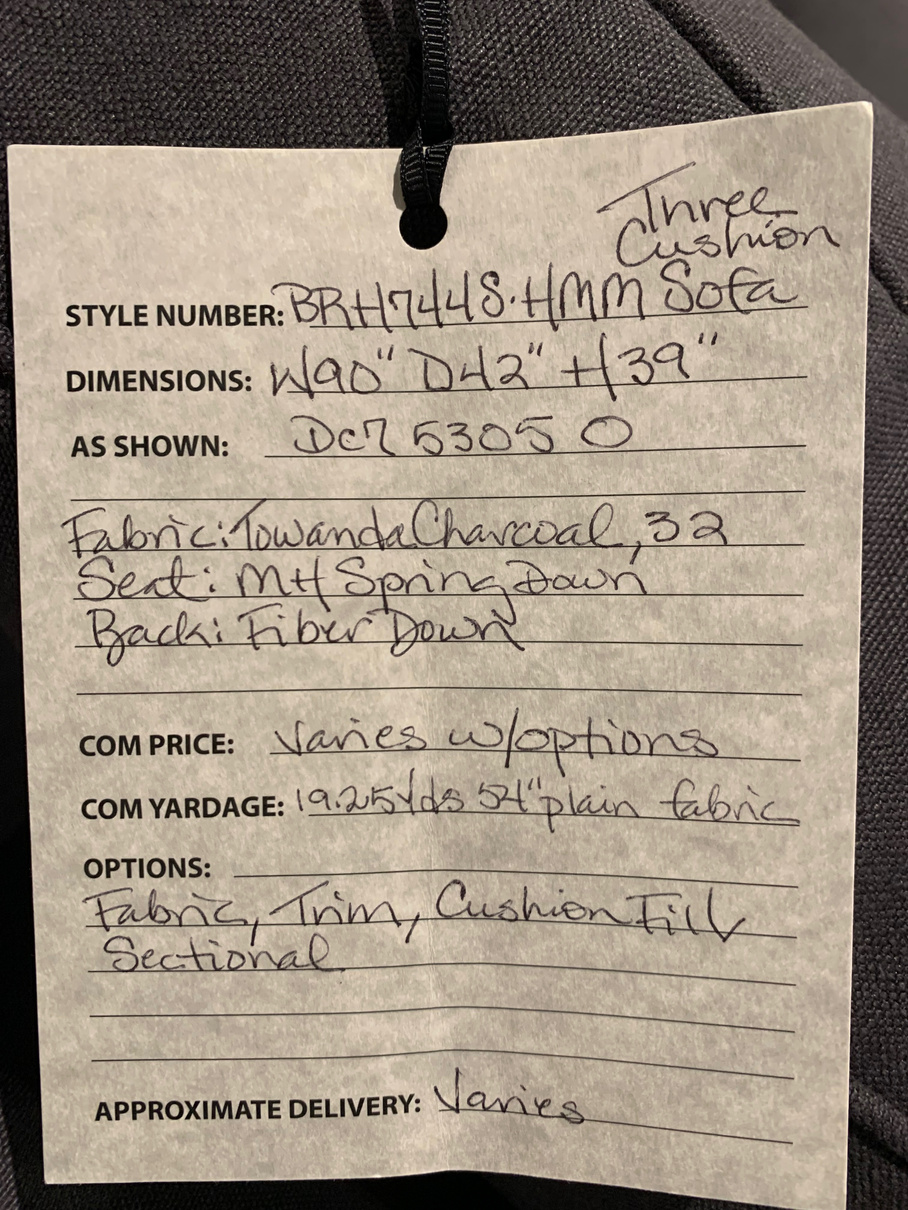 Three
Cushion
STYLE NUMBER: BRH7448·HMM Sofa
DIMENSIONS: W90" D42" H39"
AS SHOWN: 53050
Fabric: Towanda Charcoal, 32
Seat: MH Spring Down
Back: Fiber Down
COM PRICE: Varies w/options
COM YARDAGE: 19.25 Yds 54" plain fabric
OPTIONS:
Fabric, Trim, Cushion Fill
Sectional
APPROXIMATE DELIVERY: Varies